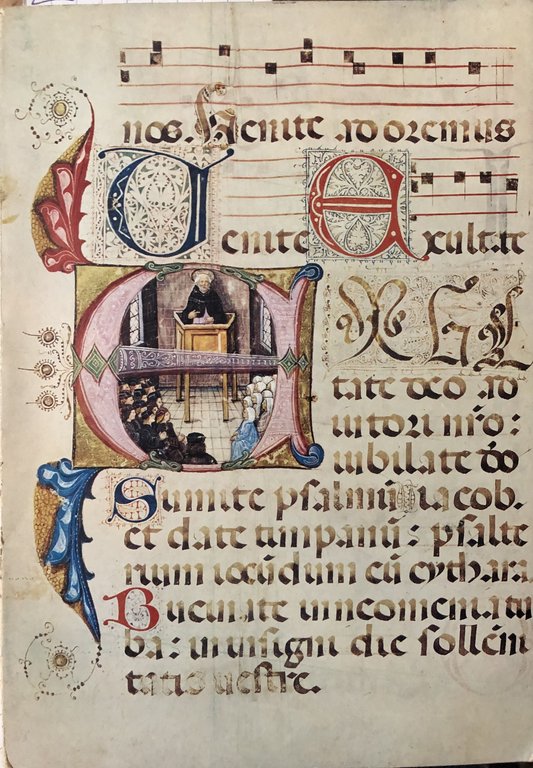 nos. Venite adoremus
Venite Exultate
EXUL
tate deo ad
iutori nr̄o:
iubilate dō
Sumite psalmū iacob.
et date timpanū: psalte
rium iocūdum cū cythara
Bucinate in neomenia tu
ba: in insigni die sollēni
tatis vestre.